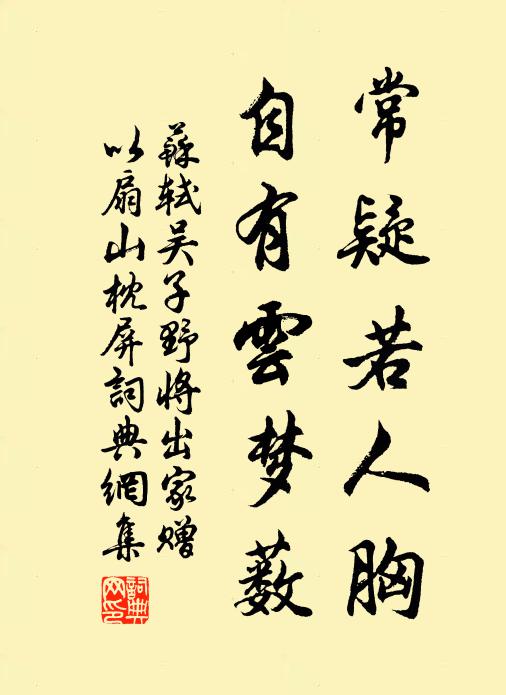 常疑若人胸
自有雲梦薮
蘇轼吴子野將出家赠
以扇山枕屏詞典網集
詞典网印